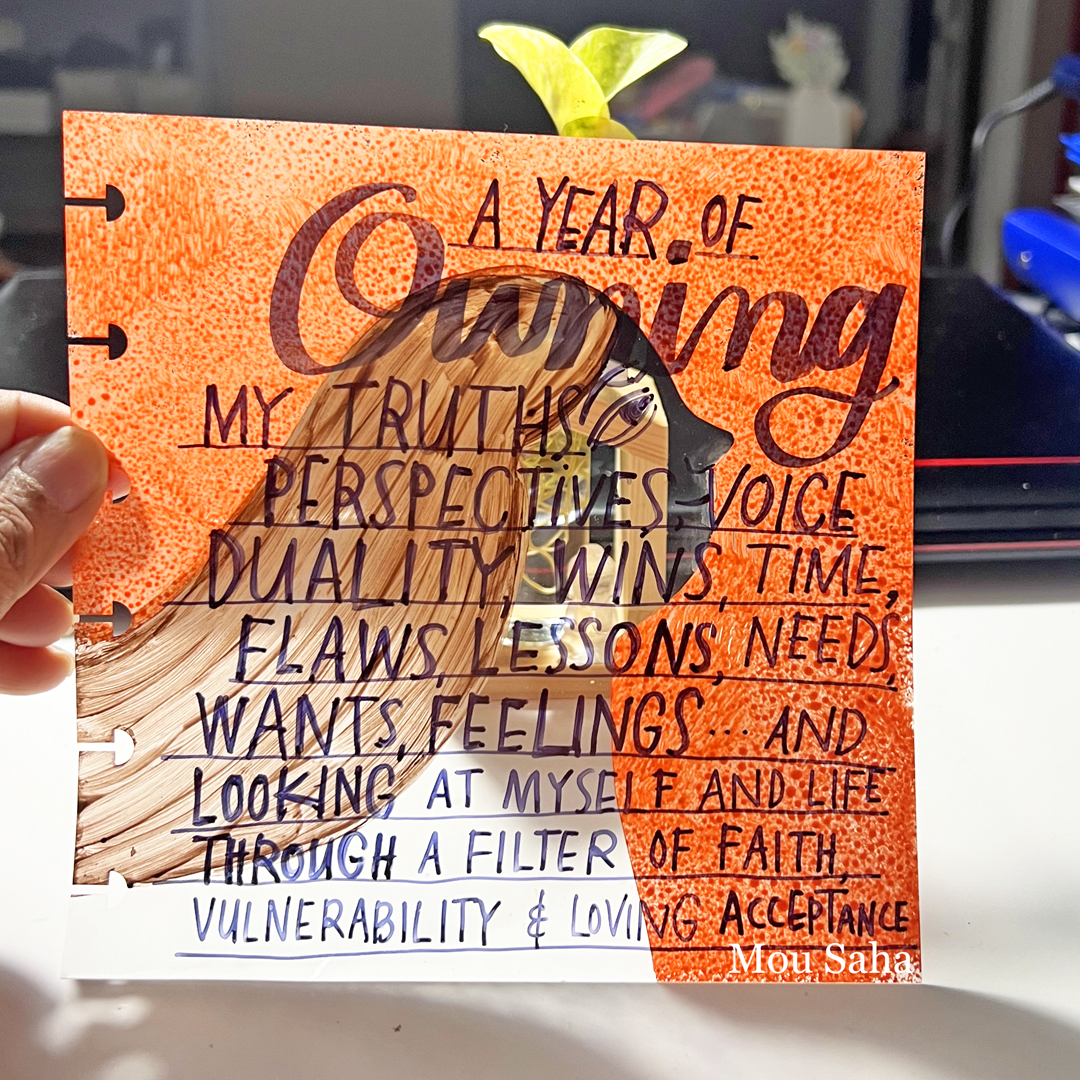 A YEAR OF
Owning
MY TRUTHS,
PERSPECTIVES, VOICE
DUALITY, WINS, TIME,
FLAWS, LESSONS, NEEDS,
WANTS, FEELINGS... AND
LOOKING AT MYSELF AND LIFE
THROUGH A FILTER OF FAITH,
VULNERABILITY & LOVING ACCEPTANCE
Mou Saha